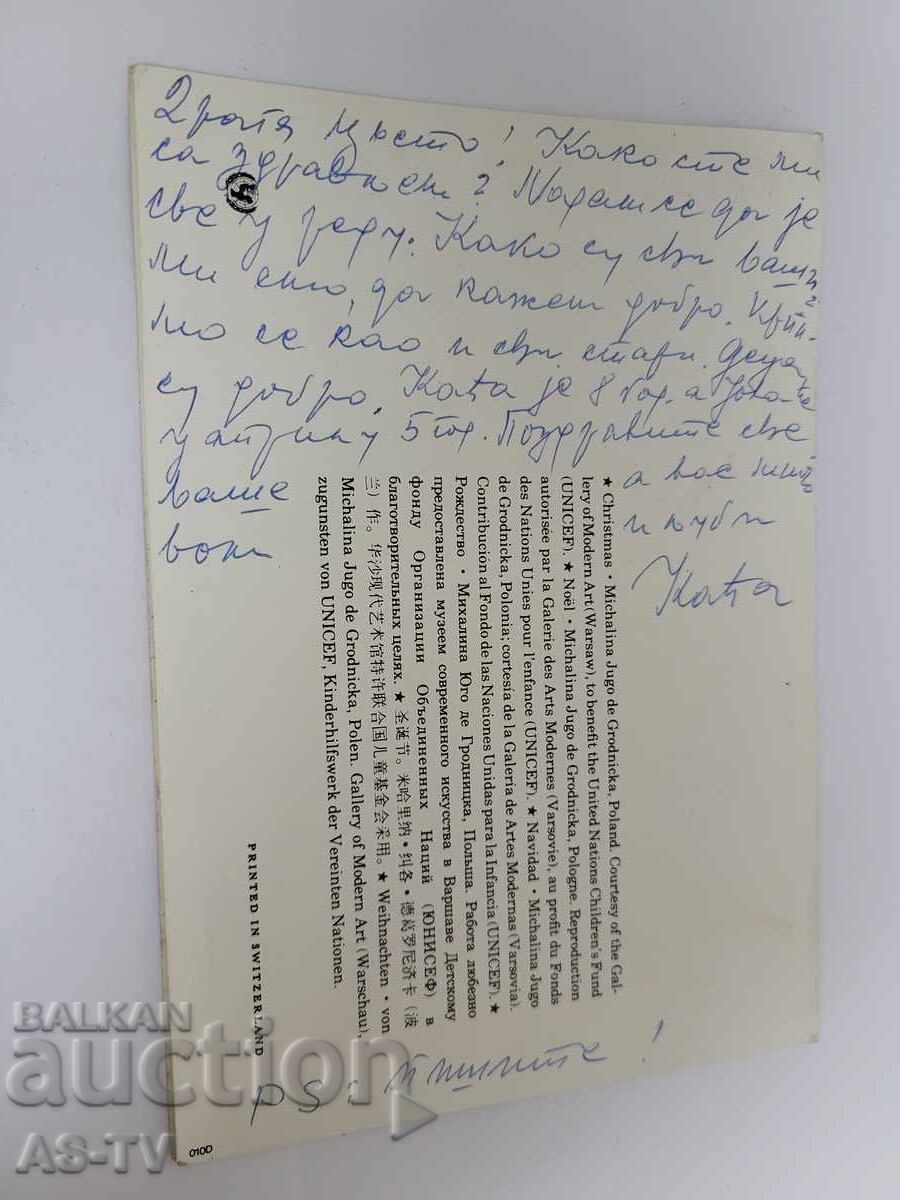 Драга Цвето! Како сте ми
са здрављем? Надам се да је
све у реду. Како су сви ваши?
Ми смо, да кажем добро.
мо се као и сви стари. Деца
су добро. Каћа је 8 год. а
5 год. Поздравите све
ваше а вас
воли и љуби
Каћа
★ Christmas • Michalina Jugo de Grodnicka, Poland. Courtesy of the Gal-
lery of Modern Art (Warsaw), to benefit the United Nations Children's Fund
(UNICEF). ★ Noël • Michalina Jugo de Grodnicka, Pologne. Reproduction
autorisée par la Galerie des Arts Modernes (Varsovie), au profit du Fonds
des Nations Unies pour l'enfance (UNICEF). ★ Navidad • Michalina Jugo
de Grodnicka, Polonia; cortesía de la Galería de Artes Modernas (Varsovia).
Contribución al Fondo de las Naciones Unidas para la Infancia (UNICEF). ★
Рождество • Михалина Юго де Гродницка, Польша. Работа любезно
предоставлена музеем современного искусства в Варшаве Детскому
фонду Организации Объединенных Наций (ЮНИСЕФ) в
благотворительных целях. ★ 圣诞节。米哈里纳•纠各•德葛罗尼济卡 (波
兰) 作。华沙现代艺术馆特许联合国儿童基金会采用。★ Weihnachten • von
Michalina Jugo de Grodnicka, Polen. Gallery of Modern Art (Warschau),
zugunsten von UNICEF, Kinderhilfswerk der Vereinten Nationen.
PRINTED IN SWITZERLAND
PS. пишите!
010D
BALKAN
auction
AS-TV